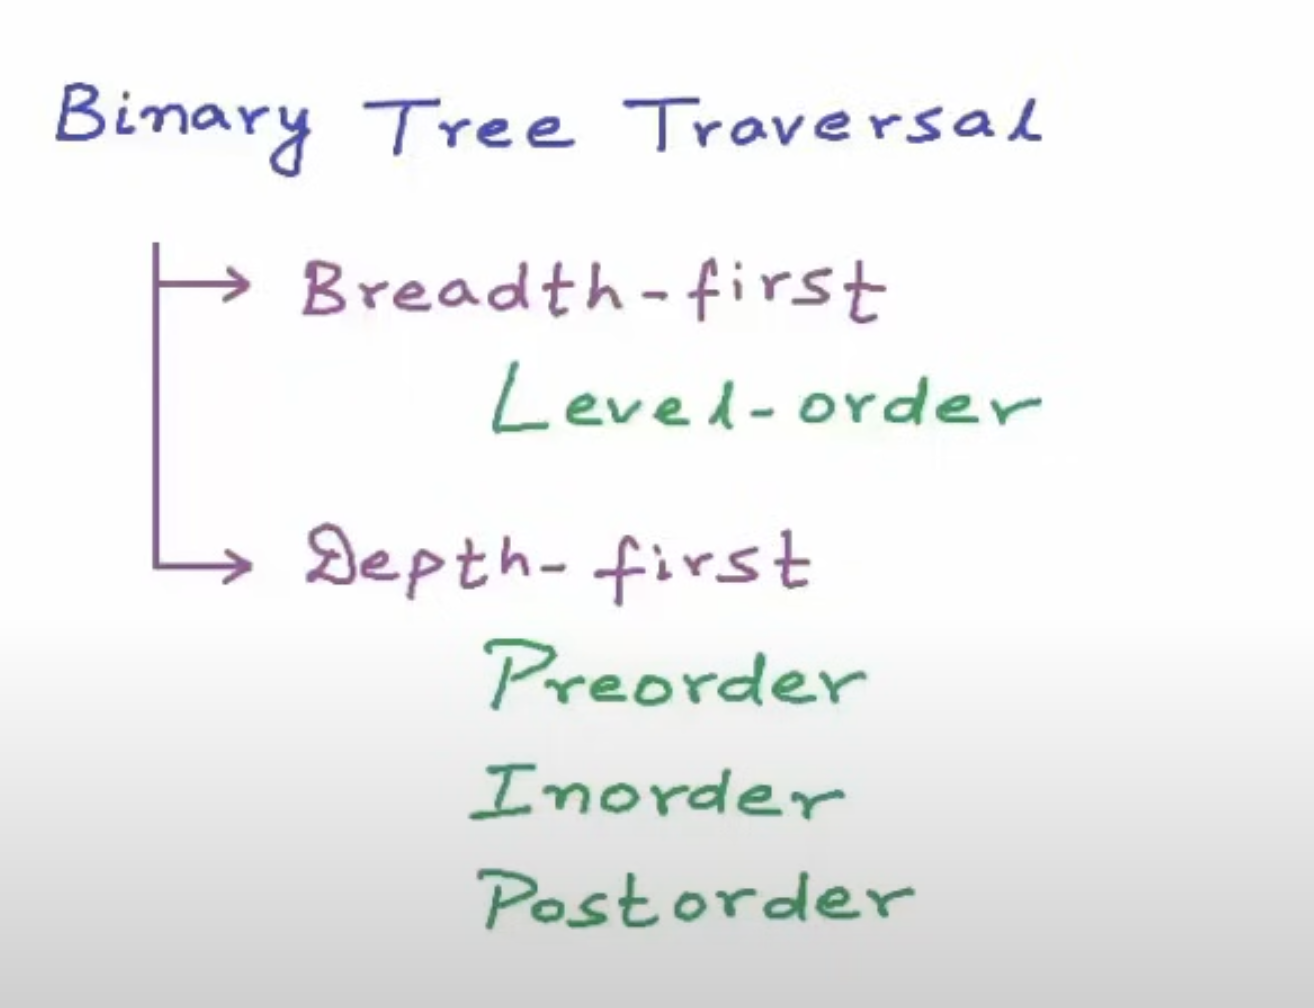 Binary Tree Traversal
Breadth-first
Level-order
Depth-first
Preorder
Inorder
Postorder